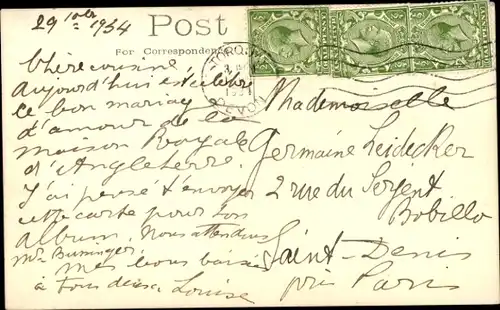 29 9bre 1934
Post
For Correspondence
TORQUAY
DEVON
Chère cousine,
aujourd'hui est célébré
le bon mariage
d'amour de la
maison Royale
d'Angleterre.
J'ai pensé t'envoyer
cette carte pour ton
album. Nous attendons
Mr Businger.
Mes bons baisers
à tous deux. Louise
Mademoiselle
Germaine Leidecker
2 rue du Sergent
Bobillo
Saint-Denis
près Paris